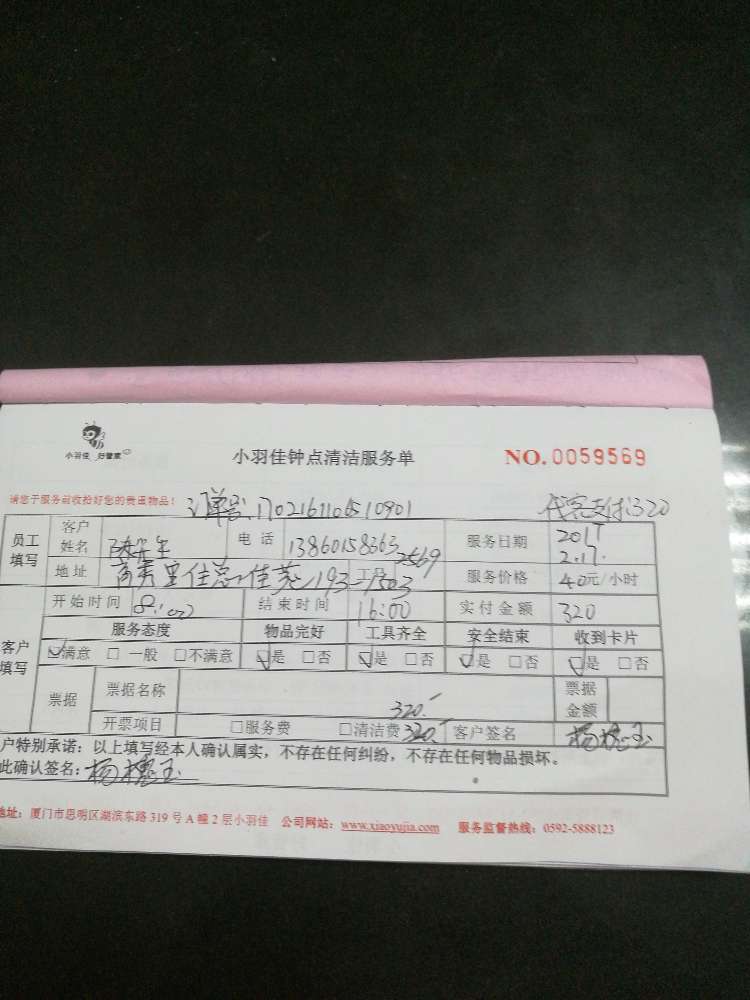 小羽佳 好管家
小羽佳钟点清洁服务单
NO.0059569
请您于服务前收拾好您的贵重物品！
订单号:170216110510901
代客支付320
员工填写
客户姓名
电话 13860158363
服务日期 2017 2.17.
地址
工号 2569
服务价格 40元/小时
开始时间 8:00
结束时间 16:00
实付金额 320
客户填写
服务态度 物品完好 工具齐全 安全结束 收到卡片
☑满意 □ 一般 □不满意 ☑是 □否 ☑是 □否 ☑是 □否 ☑是 □否
票据
票据名称 320.-
票据金额
开票项目 □服务费 □清洁费 320.- 客户签名
户特别承诺：以上填写经本人确认属实，不存在任何纠纷，不存在任何物品损坏。
此确认签名：
地址：厦门市思明区湖滨东路 319 号 A 幢 2 层小羽佳 公司网站：www.xiaoyujia.com 服务监督热线：0592-5888123